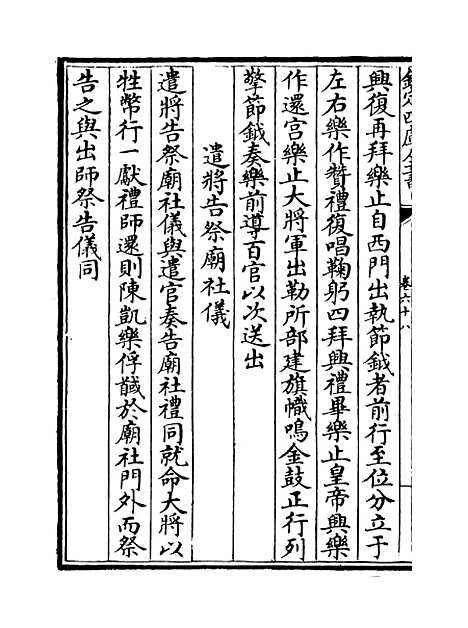 欽定四庫全書
卷六十八
興復再拜樂止自西門出執節鉞者前行至位分立于
左右樂作贊禮復唱鞠躬四拜興禮畢樂止皇帝興樂
作還宫樂止大將軍出勒所部建旗幟鳴金鼓正行列
擎節鉞奏樂前導百官以次送出
遣將告祭廟社儀
遣將告祭廟社儀與遣官奏告廟社禮同就命大將以
牲幣行一獻禮師還則陳凱樂俘馘於廟社門外而祭
告之與出師祭告儀同